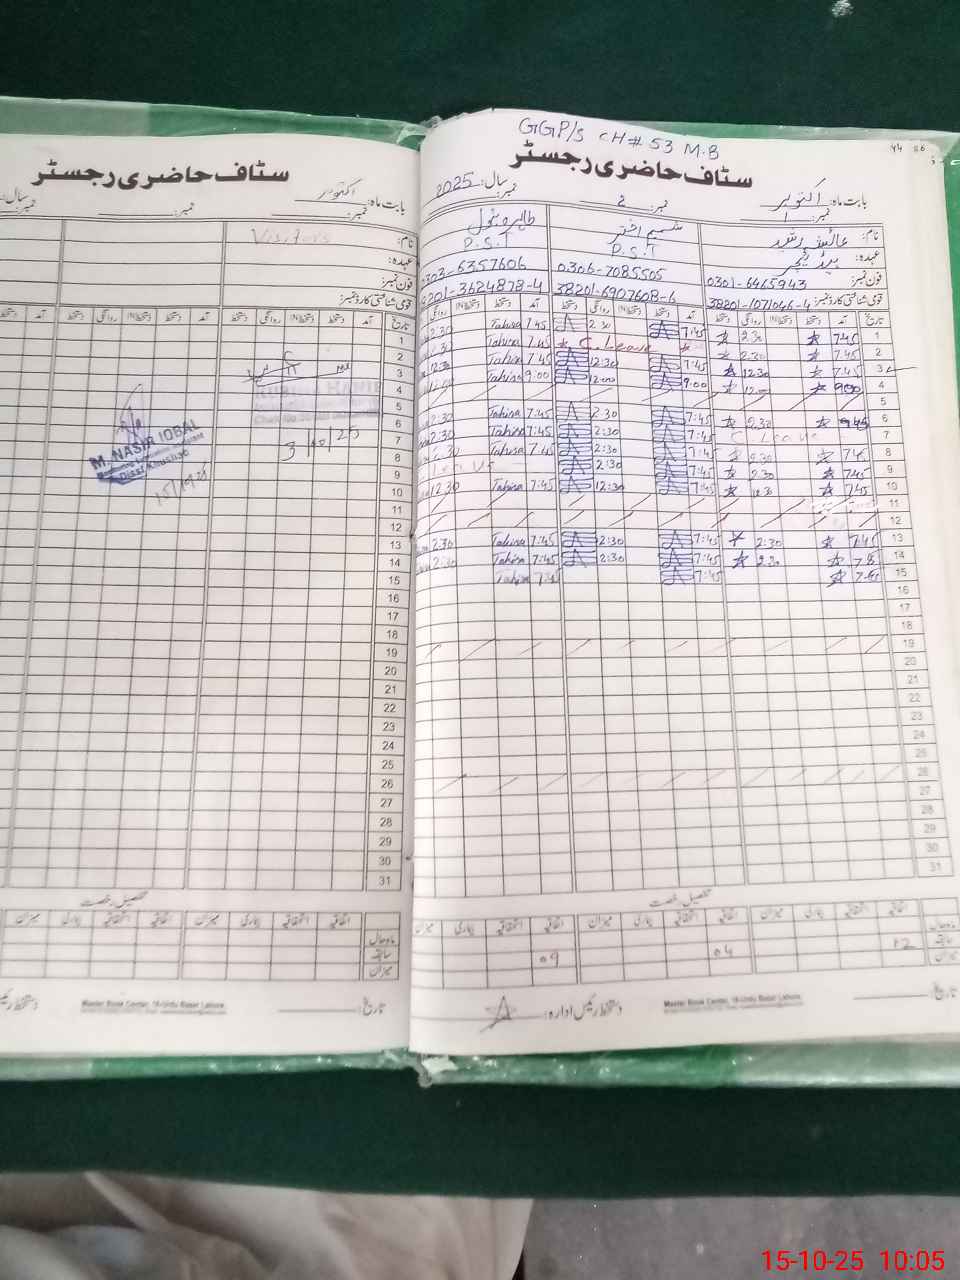 GGP/s CH# 53 M.B
44
سٹاف حاضری رجسٹر
بابت ماہ: اکتوبر
سال: 2025
نمبر: 1
نمبر: 2
نمبر:
نام: عائشہ رشید
شمیم اختر
طاہرہ بتول
عہدہ: ہیڈ ٹیچر
P.S.T
P.S.T
فون نمبر: 0301-6965943
0306-7085505
0303-6357606
قومی شناختی کارڈ نمبر: 38201-1071066-4
38201-6907608-6
38201-3624878-4
تاریخ آمد دستخط دستخط(IN) روانگی دستخط
1 7:45 2:30 7:45 2:30 7:45 Tahira 2:30
2 7:45 2:30 C.Leave 7:45 Tahira 2:30
3 7:45 12:30 7:45 12:30 7:45 Tahira 12:30
4 9:00 12:00 9:00 12:00 9:00 Tahira
5
6 2:30 7:45 2:30 7:45 Tahira 2:30
7 C Leave 7:45 2:30 7:45 Tahira 2:30
8 7:45 2:30 7:45 2:30 7:45 Tahira 2:30
9 7:45 2:30 7:45 2:30 Leave
10 7:45 12:30 7:45 12:30 7:45 Tahira 12:30
11
12
13 7:45 2:30 7:45 2:30 7:45 Tahira 2:30
14 7:45 2:30 7:45 2:30 7:45 Tahira 2:30
15 7:45 7:45 7:45 Tahira
16
17
18
19
20
21
22
23
24
25
26
27
28
29
30
31
تفصیل رخصت
اتفاقیہ استحقاقیہ بیماری میزان
ماہ حال
سابقہ 02 04 09
میزان
تاریخ:
Master Book Center, 16-Urdu Bazar Lahore.
دستخط رئیس ادارہ:
سٹاف حاضری رجسٹر
بابت ماہ: اکتوبر
سال:
نمبر:
نمبر:
نام: Visitors
عہدہ:
فون نمبر:
قومی شناختی کارڈ نمبر:
تاریخ آمد دستخط دستخط(IN) روانگی دستخط
1
2
3
4
5
6
7
8
9
10
11
12
13
14
15
16
17
18
19
20
21
22
23
24
25
26
27
28
29
30
31
3/10/25
M. NASIR IQBAL
Distt Khushab
تفصیل رخصت
اتفاقیہ استحقاقیہ بیماری میزان
ماہ حال
سابقہ
میزان
تاریخ:
Master Book Center, 16-Urdu Bazar Lahore.
15-10-25 10:05